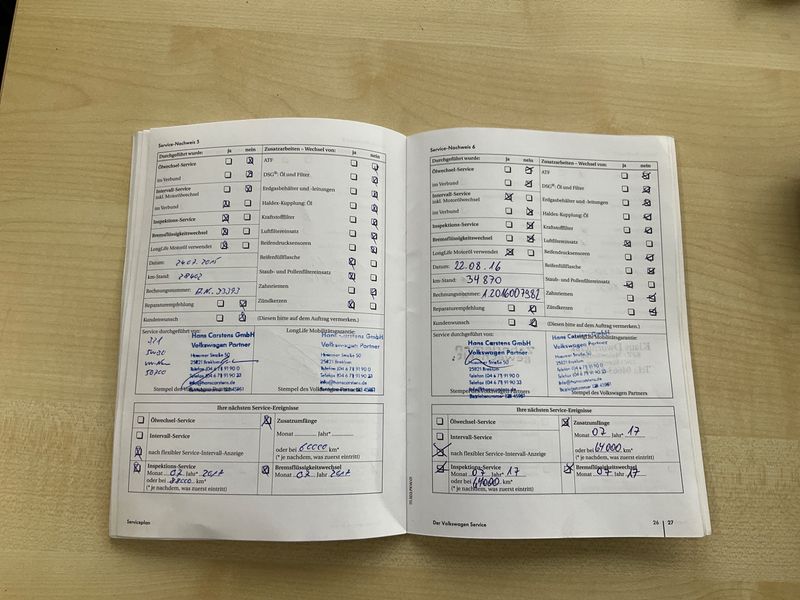 Service-Nachweis 5
Durchgeführt wurde: ja nein
Ölwechsel-Service
im Verbund
Intervall-Service
inkl. Motorölwechsel
im Verbund
Inspektions-Service
Bremsflüssigkeitswechsel
LongLife Motoröl verwendet
Datum: 24.07.2015
km-Stand: 28402
Rechnungsnummer:
Reparaturempfehlung
Kundenwunsch
Zusatzarbeiten – Wechsel von: ja nein
ATF
DSG®: Öl und Filter
Erdgasbehälter und -leitungen
Haldex-Kupplung: Öl
Kraftstofffilter
Luftfiltereinsatz
Reifendrucksensoren
Reifenfüllflasche
Staub- und Pollenfiltereinsatz
Zahnriemen
Zündkerzen
(Diesen bitte auf dem Auftrag vermerken.)
Service durchgeführt von:
LongLife Mobilitätsgarantie:
Hans Carstens GmbH
Volkswagen Partner
Husumer Straße 50
25821 Breklum
Telefon (04 6 71) 91 90 33
Telefax (04 6 71) 91 90 23
info@hanscarstens.de
Stempel des Volkswagen Partners
Ihre nächsten Service-Ereignisse
Ölwechsel-Service
Intervall-Service
nach flexibler Service-Intervall-Anzeige
Inspektions-Service
Monat 07 Jahr* 2017
oder bei km*
(* je nachdem, was zuerst eintritt)
Zusatzumfänge
Monat Jahr*
oder bei 60000 km*
(* je nachdem, was zuerst eintritt)
Bremsflüssigkeitswechsel
Monat 07 Jahr 2017
Serviceplan
Service-Nachweis 6
Durchgeführt wurde: ja nein
Ölwechsel-Service
im Verbund
Intervall-Service
inkl. Motorölwechsel
im Verbund
Inspektions-Service
Bremsflüssigkeitswechsel
LongLife Motoröl verwendet
Datum: 22.08.16
km-Stand: 34870
Rechnungsnummer: 1.2016007982
Reparaturempfehlung
Kundenwunsch
Zusatzarbeiten – Wechsel von: ja nein
ATF
DSG®: Öl und Filter
Erdgasbehälter und -leitungen
Haldex-Kupplung: Öl
Kraftstofffilter
Luftfiltereinsatz
Reifendrucksensoren
Reifenfüllflasche
Staub- und Pollenfiltereinsatz
Zahnriemen
Zündkerzen
(Diesen bitte auf dem Auftrag vermerken.)
Service durchgeführt von:
Mobilitätsgarantie:
Hans Carstens GmbH
Volkswagen Partner
Husumer Straße 50
25821 Breklum
Telefon (04 6 71) 91 90 33
Telefax (04 6 71) 91 90 23
info@hanscarstens.de
Stempel des Volkswagen Partners
Ihre nächsten Service-Ereignisse
Ölwechsel-Service
Intervall-Service
nach flexibler Service-Intervall-Anzeige
Inspektions-Service
Monat 07 Jahr* 17
oder bei 64000 km*
(* je nachdem, was zuerst eintritt)
Zusatzumfänge
Monat 07 Jahr* 17
oder bei 64000 km*
(* je nachdem, was zuerst eintritt)
Bremsflüssigkeitswechsel
Monat 07 Jahr 17
Der Volkswagen Service
26 27